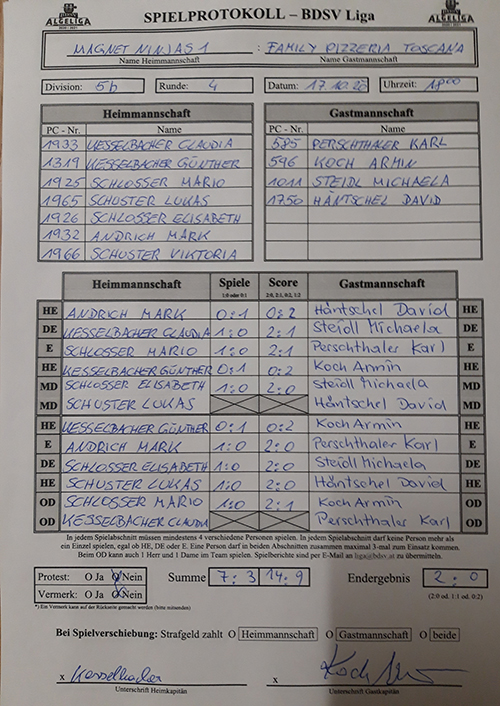 ALGELIGA SPIELPROTOKOLL – BDSV Liga ALGELIGA
MAGNET NINJAS 1 : FAMILY PIZZERIA TOSCANA
Name Heimmannschaft Name Gastmannschaft
Division: 5b Runde: 4 Datum: 17.10.20 Uhrzeit: 1800
Heimmannschaft Gastmannschaft
PC - Nr. Name PC - Nr. Name
1933 KESSELBACHER CLAUDIA 585 PERSCHTHALER KARL
1319 KESSELBACHER GÜNTHER 596 KOCH ARMIN
1925 SCHLOSSER MARIO 1011 STEIDL MICHAELA
1965 SCHUSTER LUKAS 1750 HÄNTSCHEL DAVID
1926 SCHLOSSER ELISABETH
1932 ANDRICH MARK
1966 SCHUSTER VIKTORIA
Heimmannschaft Spiele Score Gastmannschaft
1:0 or 0:1 2:0, 2:1, 0:2, 1:2
HE ANDRICH MARK 0:1 0:2 Häntschel David HE
DE KESSELBACHER CLAUDIA 1:0 2:1 Steidl Michaela DE
E SCHLOSSER MARIO 1:0 2:1 Perschthaler Karl E
HE KESSELBACHER GÜNTHER 0:1 0:2 Koch Armin HE
MD SCHLOSSER ELISABETH 1:0 2:0 Steidl Michaela MD
MD SCHUSTER LUKAS Häntschel David MD
HE KESSELBACHER GÜNTHER 0:1 0:2 Koch Armin HE
E ANDRICH MARK 1:0 2:0 Perschthaler Karl E
DE SCHLOSSER ELISABETH 1:0 2:0 Steidl Michaela DE
HE SCHUSTER LUKAS 1:0 2:0 Häntschel David HE
OD SCHLOSSER MARIO 1:0 2:1 Koch Armin OD
OD KESSELBACHER CLAUDIA Perschthaler Karl OD
In jedem Spielabschnitt müssen mindestens 4 verschiedene Personen spielen. In jedem Spielabschnitt darf keine Person mehr als
ein Einzel spielen, egal ob HE, DE oder E. Eine Person darf in beiden Abschnitten zusammen maximal 3-mal zum Einsatz kommen.
Beim OD kann auch 1 Herr und 1 Dame im Team spielen. Spielberichte sind per E-Mail an liga@bdsv.at zu übermitteln.
Protest: O Ja O Nein Summe 7:3 14:9 Endergebnis 2:0
Vermerk: O Ja O Nein (2:0 od. 1:1 od. 0:2)
*) Ein Vermerk kann auf der Rückseite gemacht werden (bitte mitsenden)
Bei Spielverschiebung: Strafgeld zahlt O Heimmannschaft O Gastmannschaft O beide
x Kesselbacher x Koch
Unterschrift Heimkapitän Unterschrift Gastkapitän